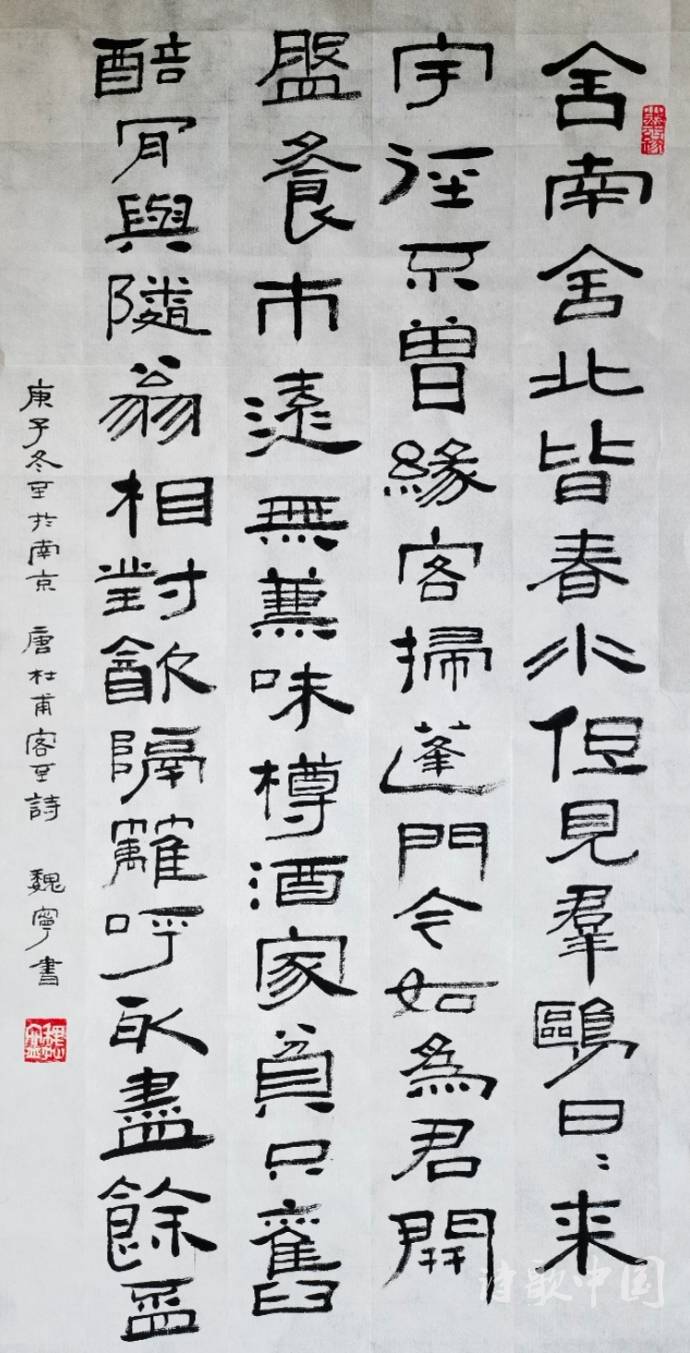 舍南舍北皆春水但見羣鷗日〻来
宇徑不曾緣客掃蓬門今如為君開
盤餐市遠無蒹味樽酒家貧只舊
醅肎與隣翁相對飲隔籬呼取盡餘盃
庚子冬至於南京 唐杜甫客至詩 魏寧書
诗歌中国